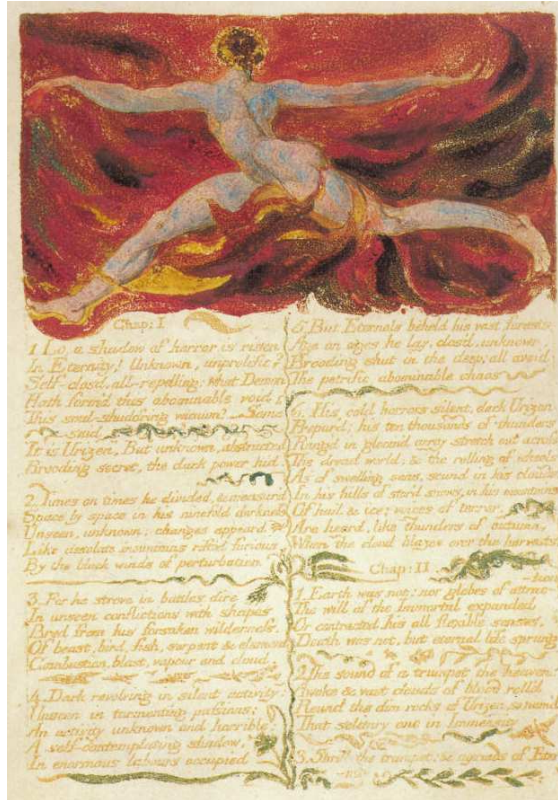 Chap: I
1 Lo, a shadow of horror is risen
In Eternity! Unknown, unprolific?
Self-closd, all-repelling; what Demon
Hath form'd this abominable void
This soul-shudd'ring vacuum? Some
said
It is Urizen, But unknown, abstracted
Brooding secret, the dark power hid.
2. Times on times he divided, & measur'd
Space by space in his ninefold darkness
Unseen, unknown; changes appeard
Like desolate mountains rifted furious
By the black winds of perturbation
3. For he strove in battles dire
In unseen conflictions with shapes
Bred from his forsaken wilderness.
Of beast, bird, fish, serpent & element
Combustion, blast, vapour and cloud.
4. Dark revolving in silent activity:
Unseen in tormenting passions;
An activity unknown and horrible;
A self-contemplating shadow,
In enormous labours occupied
5. But Eternals beheld his vast forests
Age on ages he lay, clos'd, unknown,
Brooding shut in the deep; all avoid
The petrific abominable chaos
6. His cold horrors silent, dark Urizen
Prepar'd: his ten thousands of thunders
Rang'd in gloom'd array stretch out across
The dread world; & the rolling of wheels
As of swelling seas, sound in his clouds
In his hills of stor'd snows, in his
Of hail & ice; voices of terror,
Are heard, like thunders of autumn,
When the cloud blazes over the harvests
Chap: II
1. Earth was not: nor globes of attrac
-tion
The will of the Immortal expanded
Or contracted his all flexible senses.
Death was not, but eternal life sprung
2. The sound of a trumpet the heavens
Awoke & vast clouds of blood roll'd
Round the dim rocks of Urizen, so nam'd
That solitary one in Immensity
3. Shrill the trumpet: & myriads of Eter